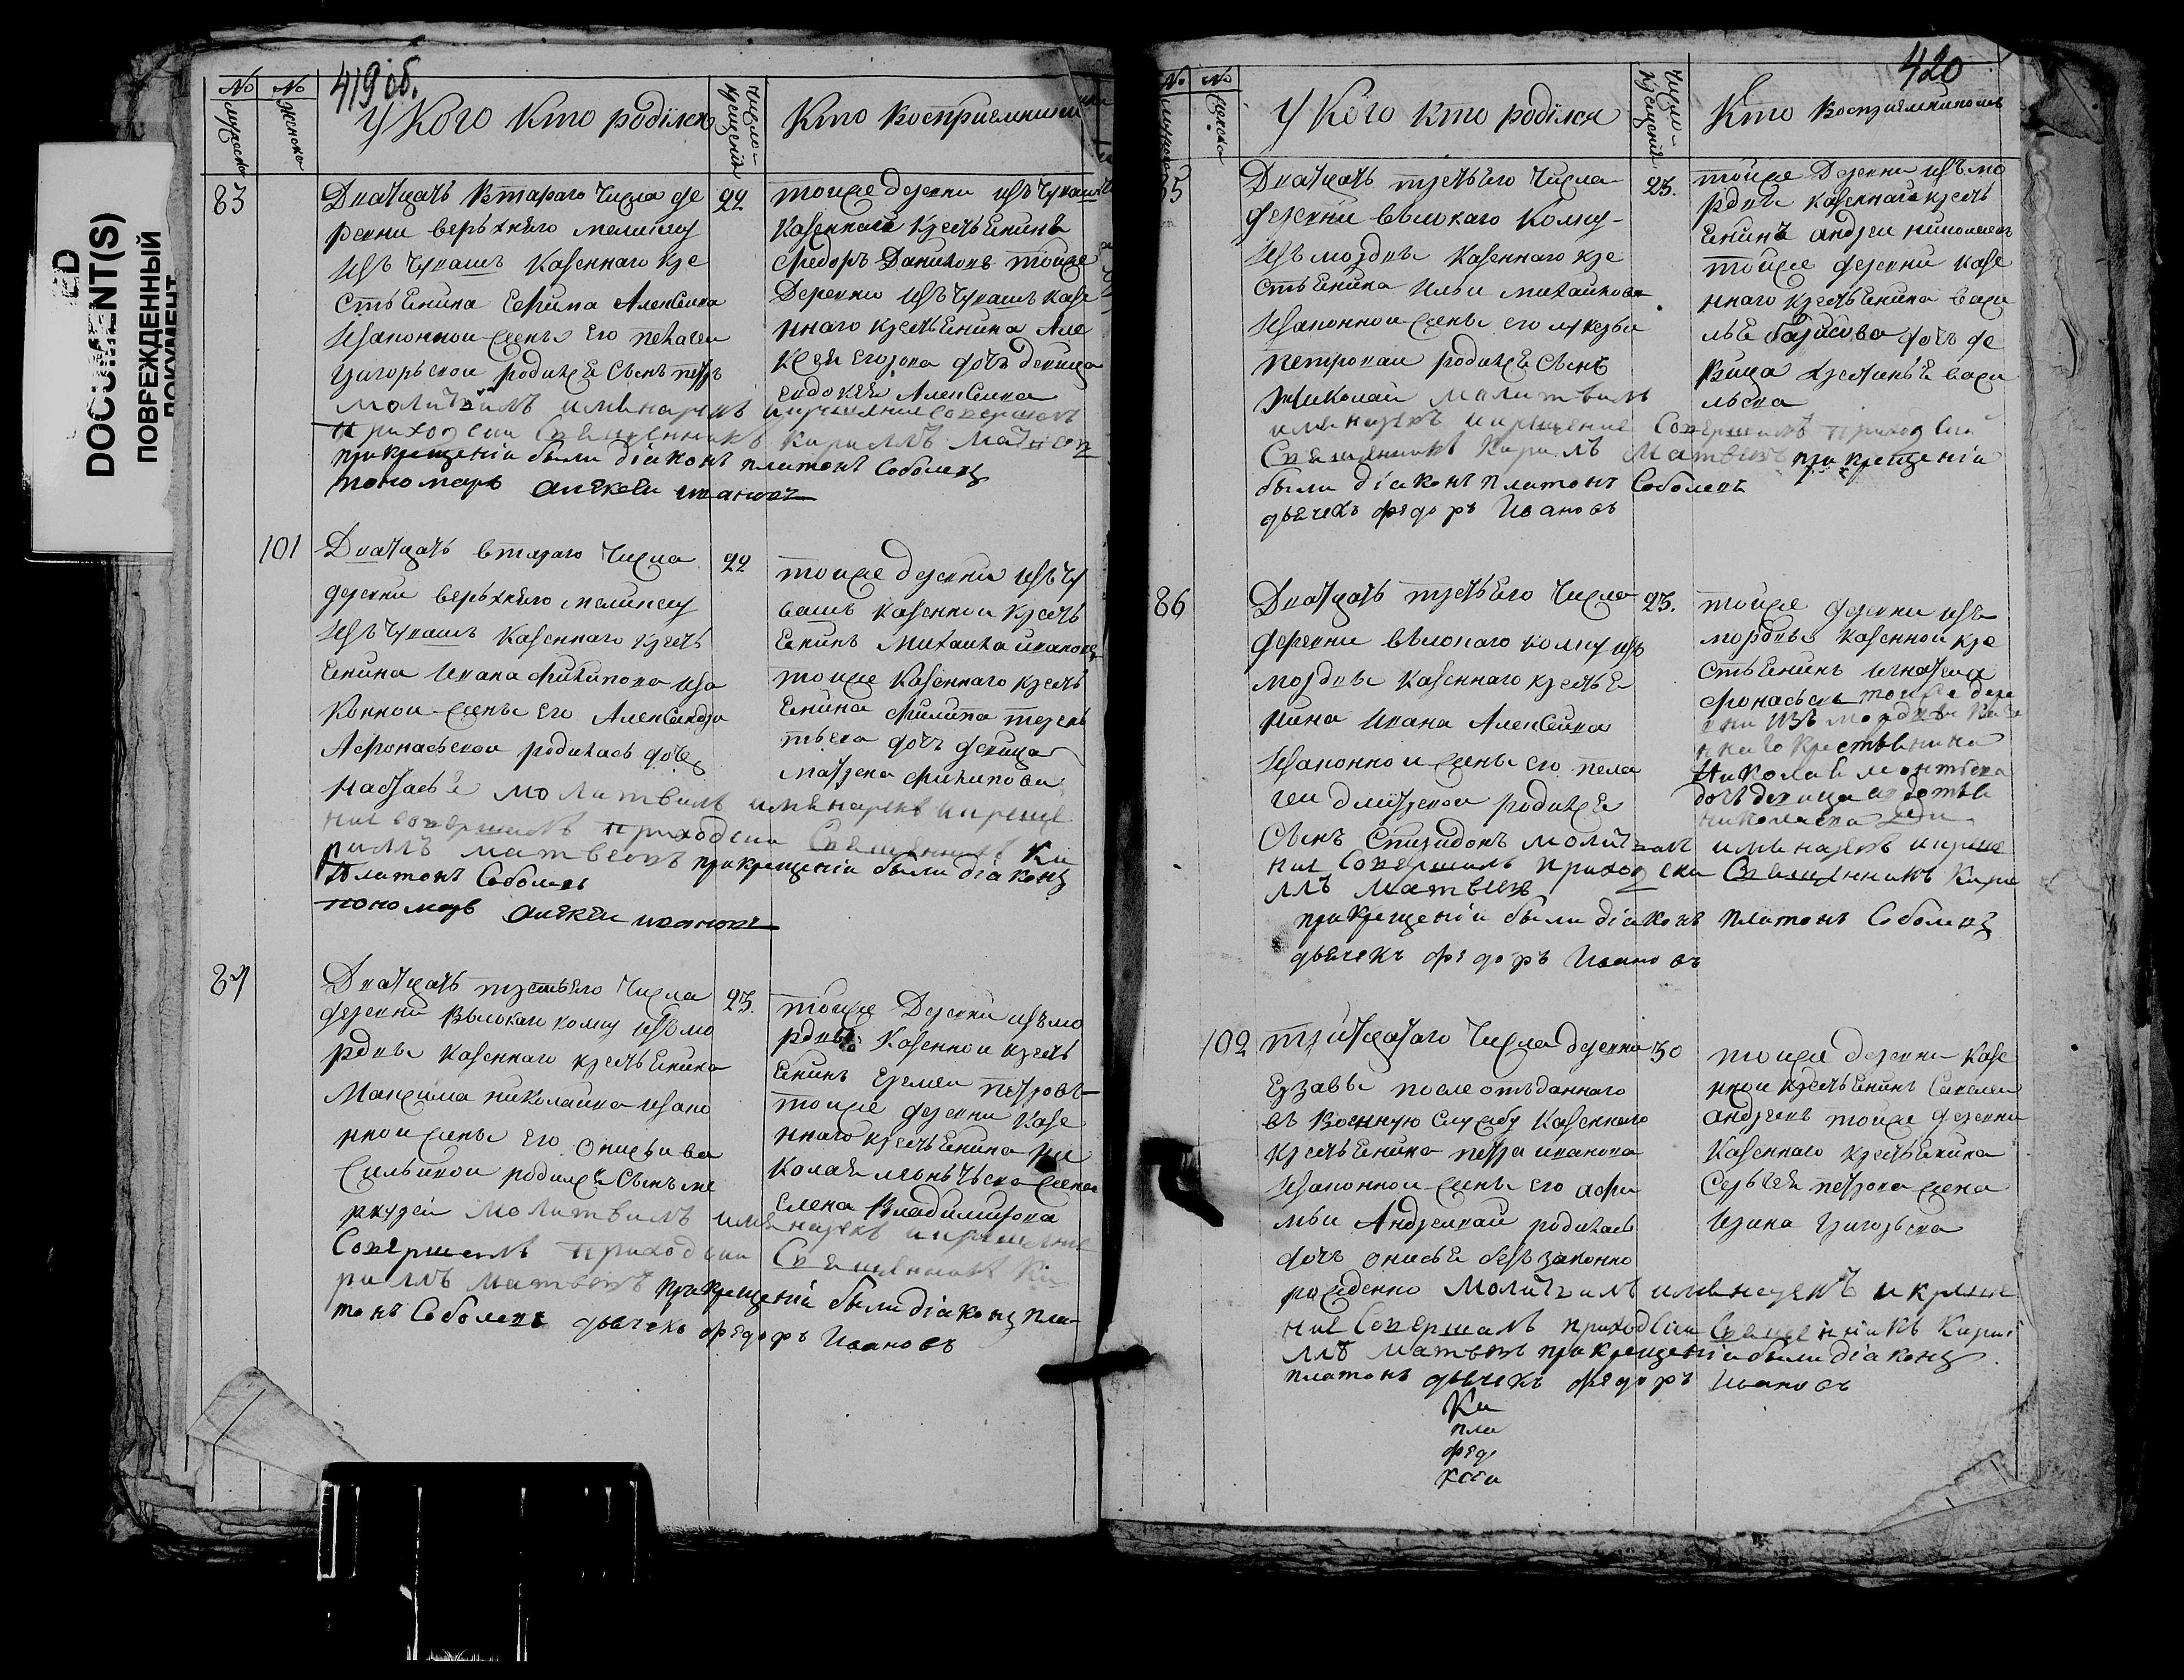 419 об.
№ мужеска
№ женска
У Кого кто родился
Число крещенія
Кто восприемники
83
Дватцать втараго числа де
ревни верьхняго мелекесу
изъ чувашъ казеннаго кре
стьенина Ефима Алексеива
изаконной жены его пелагеи
григорьевой родился сынъ петръ
молитвилъ именарекъ икрещение совершилъ
приходский священникъ кириллъ матвеев
прикрещеніи были діаконъ платонъ Соболевъ
пономарь алексеи ивановъ
22
тоиже деревни изъ чуваш
казеннаго крестьенинъ
Федоръ Даниловъ тоиже
Деревни изъ чувашъ казе
ннаго крестьенина Але
ксея егорова дочь девица
евдокея Алексеива
101
Дватцать втараго числа
деревни верьхняго мелекесу
изъ чувашъ казеннаго кресть
енина ивана филипова иза
конной жены его Александра
Афонасьевой родилась дочь
настасье молитвилъ именарекъ икреще
ние совершилъ приходский священникъ ки
риллъ матвеевъ прикрещеніи были діаконъ
платонъ Соболевъ
пономарь алексеи ивановъ
22
тоиже деревни изъ чу
вашъ казенной кресть
енинъ михаила ивановъ
тоиже казеннаго кресть
енина филипа терень
тьева дочь девица
матрена филипова
84
Дватцать третьего числа
деревни вылокаи колку изъ мо
рдвы казеннаго крестьенина
Максима николаива изако
нной жены его онисьи ва
сильивой родился сынъ ме
ркурей молитвилъ именарекъ икрещение
совершилъ приходский священникъ ки
риллъ матвеевъ прикрещеніи были діаконъ пла-
тонъ Соболевъ дьячекъ федоръ Ивановъ
23.
тоиже Деревни изъ мо
рдвы казенной кресть
енинъ еремеи петровъ
тоиже деревни казе
ннаго крестьенина ни
колая леонтьева жена
елена владимирова
420
№
№ женска
У Кого кто родился
Число крещеніе
Кто восприемникомъ
85
Дватцать третьего числа
деревни вылокаго колку
изъ мордвы казеннаго кре
стьенина ильи михаилова
изаконной жены его лукерьи
петровай родился сынъ
николай малитвилъ
именарекъ икрещение совершилъ приходский
Священникъ кирилъ матвеевъ прикрещеніи
были діаконъ платонъ Соболевъ
дьячекъ федоръ Ивановъ
23.
тоиже Деревни изъ мо
рдвы казеннаго кресть
енинъ андреи николаевъ
тоиже деревни казе
ннаго крестьенина васи
лье борисова дочь де
вица устинье васи
льева
86
Дватцать третьего числа
деревни вылокаго колку изъ
мордвы казеннаго крестье
нина ивана Алексеива
изаконной жены его пела
геи дмитревой родился
сынъ спиридонъ молитвилъ именарекъ икреще
ние совершилъ приходский священникъ кири
ллъ матвеевъ
прикрещеніи были діаконъ платонъ Соболевъ
дьячекъ федоръ Ивановъ
23.
тоиже деревни изъ
мордвы казенной кре
стьенинъ игнатей а
фонасьевъ тоиже дере
вни изъ мордвы казе
ннаго крестьенина
николая леонтьева
дочь девица авдотье
николаева
102
тритцатаго числа деревни
Ерзавы после отъданнаго
въ военную службу казеннаго
крестьенина петра иванова
изаконной жены его афи
мьи Андреивай родилась
дочь онисье безъ законно
рожденно молитвилъ именарекъ икреще
ние совершилъ приходский священникъ кири
ллъ матвеевъ прикрещеніи были діаконъ
платонъ дьячекъ федоръ Ивановъ
30
тоиже деревни казе
нной крестьенинъ савелеи
андреевъ тоиже деревни
казеннаго крестьенина
Сергея петрова жена
ирина григорьева
Ки
пла
фед
DOCUMENT(S)
ПОВРЕЖДЕННЫЙ
ДОКУМЕНТ